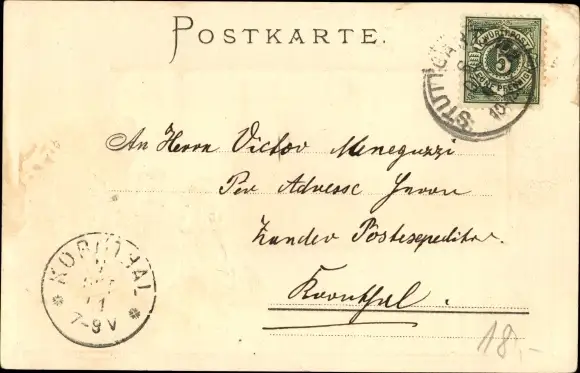 POSTKARTE.
K. WÜRTT. POST
5
STUTTGA
An Herrn Victor Meneguzzi
Per Adresse Herrn
Zander Postexpeditor
Kornthal.
KORNTHAL
7-9 V
18,-